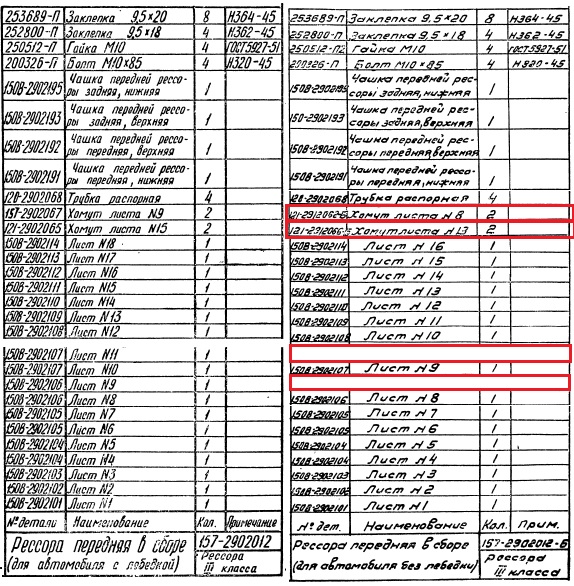 253689-П Заклепка 9,5×20 8 Н364-45
252800-П Заклепка 9,5×18 4 Н362-45
250512-П Гайка М10 4 ГОСТ5927-51
200326-П Болт М10×85 4 Н320-45
150В-2902195 Чашка передней рессоры задняя, нижняя 1
150В-2902193 Чашка передней рессоры задняя, верхняя 1
150В-2902192 Чашка передней рессоры передняя, верхняя 1
150В-2902191 Чашка передней рессоры передняя, нижняя 1
120-2902068 Трубка распорная 4
157-2902067 Хомут листа N9 2
121-2902065 Хомут листа N15 2
150В-2902114 Лист N18 1
150В-2902113 Лист N17 1
150В-2902112 Лист N16 1
150В-2902111 Лист N15 1
150В-2902110 Лист N14 1
150В-2902109 Лист N13 1
150В-2902108 Лист N12 1
150В-2902107 Лист N11 1
150В-2902107 Лист N10 1
150В-2902106 Лист N9 1
150В-2902106 Лист N8 1
150В-2902105 Лист N7 1
150В-2902105 Лист N6 1
150В-2902104 Лист N5 1
150В-2902104 Лист N4 1
150В-2902103 Лист N3 1
150В-2902102 Лист N2 1
150В-2902101 Лист N1 1
№ детали Наименование Кол. Примечание
Рессора передняя в сборе 157-2902012
(для автомобиля с лебедкой) Рессора
III класса
253689-П Заклепка 9,5×20 8 Н364-45
252800-П Заклепка 9,5×18 4 Н362-45
250512-П2 Гайка М10 4 ГОСТ5927-51
200326-П Болт М10×85 4 Н320-45
150В-2902195 Чашка передней рессоры задняя, нижняя 1
150-2902193 Чашка передней рессоры задняя, верхняя 1
150В-2902192 Чашка передней рессоры передняя, верхняя 1
150В-2902191 Чашка передней рессоры передняя, нижняя 1
120-2902068 Трубка распорная 4
121-2912062-Б Хомут листа N8 2
Хомут листа N13 2
150В-2902114 Лист N16 1
150В-2902113 Лист N15 1
150В-2902112 Лист N14 1
150В-2902111 Лист N13 1
150В-2902110 Лист N12 1
150В-2902109 Лист N11 1
150В-2902108 Лист N10 1
150В-2902107 Лист N9 1
150В-2902106 Лист N8 1
150В-2902105 Лист N7 1
150В-2902105 Лист N6 1
150В-2902104 Лист N5 1
150В-2902104 Лист N4 1
150В-2902103 Лист N3 1
150В-2902102 Лист N2 1
150В-2902101 Лист N1 1
№ дет. Наименование Кол. Прим.
Рессора передняя в сборе 157-2902012-Б
(для автомобиля без лебедки) Рессора
III класса